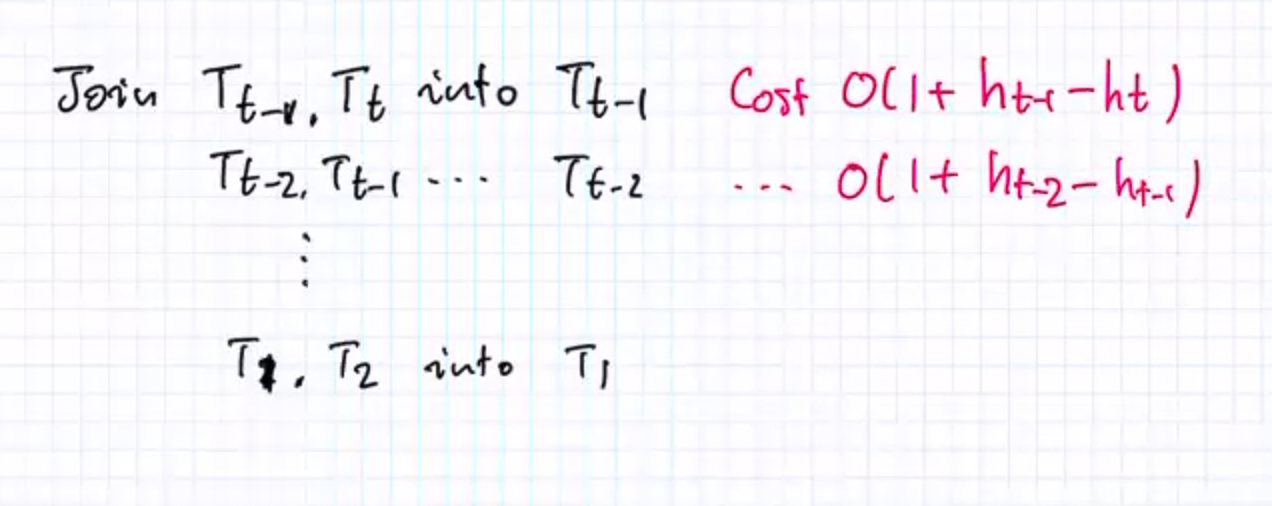 Join T_{t-1}, T_t into T_{t-1} Cost O(1 + h_{t-1} - h_t)
T_{t-2}, T_{t-1} ... T_{t-2} ... O(1 + h_{t-2} - h_{t-1})
⋮
T_1, T_2 into T_1